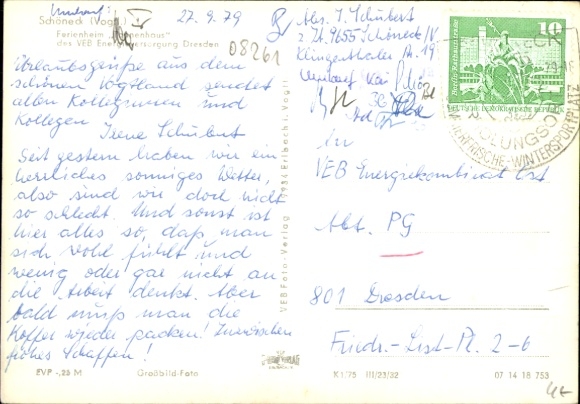 Umlauf!
Schöneck (Vogtl.)
27. 9. 79
Ferienheim „
des VEB Energieversorgung Dresden
08261
Urlaubsgrüße aus dem
schönen Vogtland sendet
allen Kolleginnen und
Kollegen
Irene Schubert
Seit gestern haben wir ein
herrliches sonniges Wetter,
also sind wir doch nicht
so schlecht. Und sonst ist
hier alles so, daß man
sich wohl fühlt und
wenig oder gar nicht an
die Arbeit denkt. Aber
bald muß man die
Koffer wieder packen! Inzwischen
frohes Schaffen!
EVP -,25 M
Großbild-Foto
VEB Foto-Verlag 9934 Erlbach Vogtl.
Abs. I. Schubert
z. Zt. 9655 Schöneck/V
Klingenthaler 19
Umlauf
10
DEUTSCHE DEMOKRATISCHE REPUBLIK
WINTERSPORTPLATZ
in
VEB Energiekombinat Ost
Abt. PG
801 Dresden
Friedr.-List-Pl. 2-6
K1/75 III/23/32
07 14 18 753